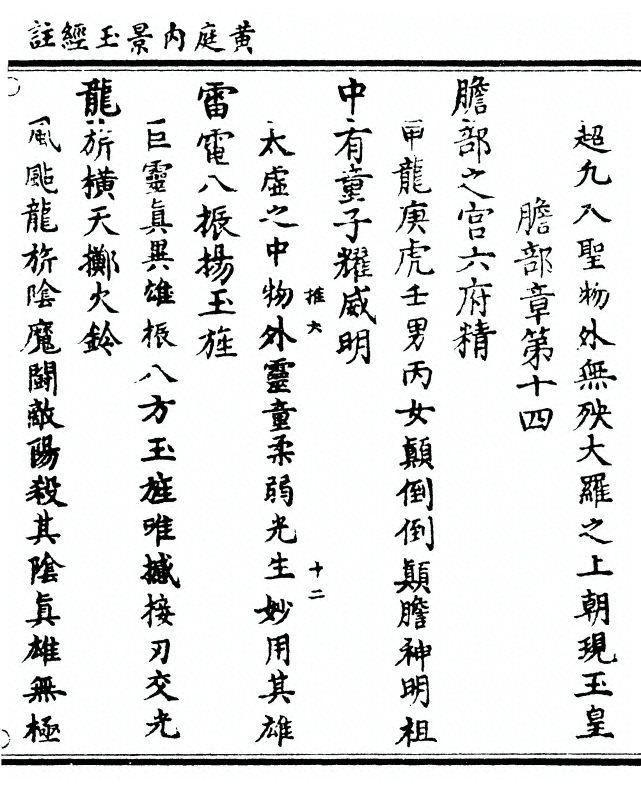 黃庭內景玉經註
超九入聖物外無殃大羅之上朝現玉皇
膽部章第十四
膽部之宮六府精
甲龍庚虎壬男丙女顛倒倒顛膽神明祖
中有童子耀威明
推六
十二
太虛之中物外靈童柔弱光生妙用其雄
雷電八振揚玉旌
巨靈眞異雄振八方玉旌唯撼按刃交光
龍旂橫天擲火鈴
風颭龍旂陰魔鬪敵陽殺其陰眞雄無極